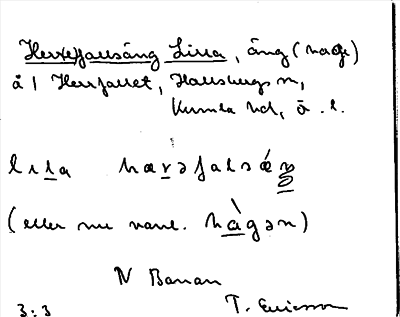 Herrefallsäng Lilla, äng (hage)
å 1 Herrfallet, Hallsbergs sn,
Kumla hd, ö. l.
lɪla hærəfalsæ̀ŋ
(eller nu vanl. hàgən)
N Banan
3:3 T. Ericsson